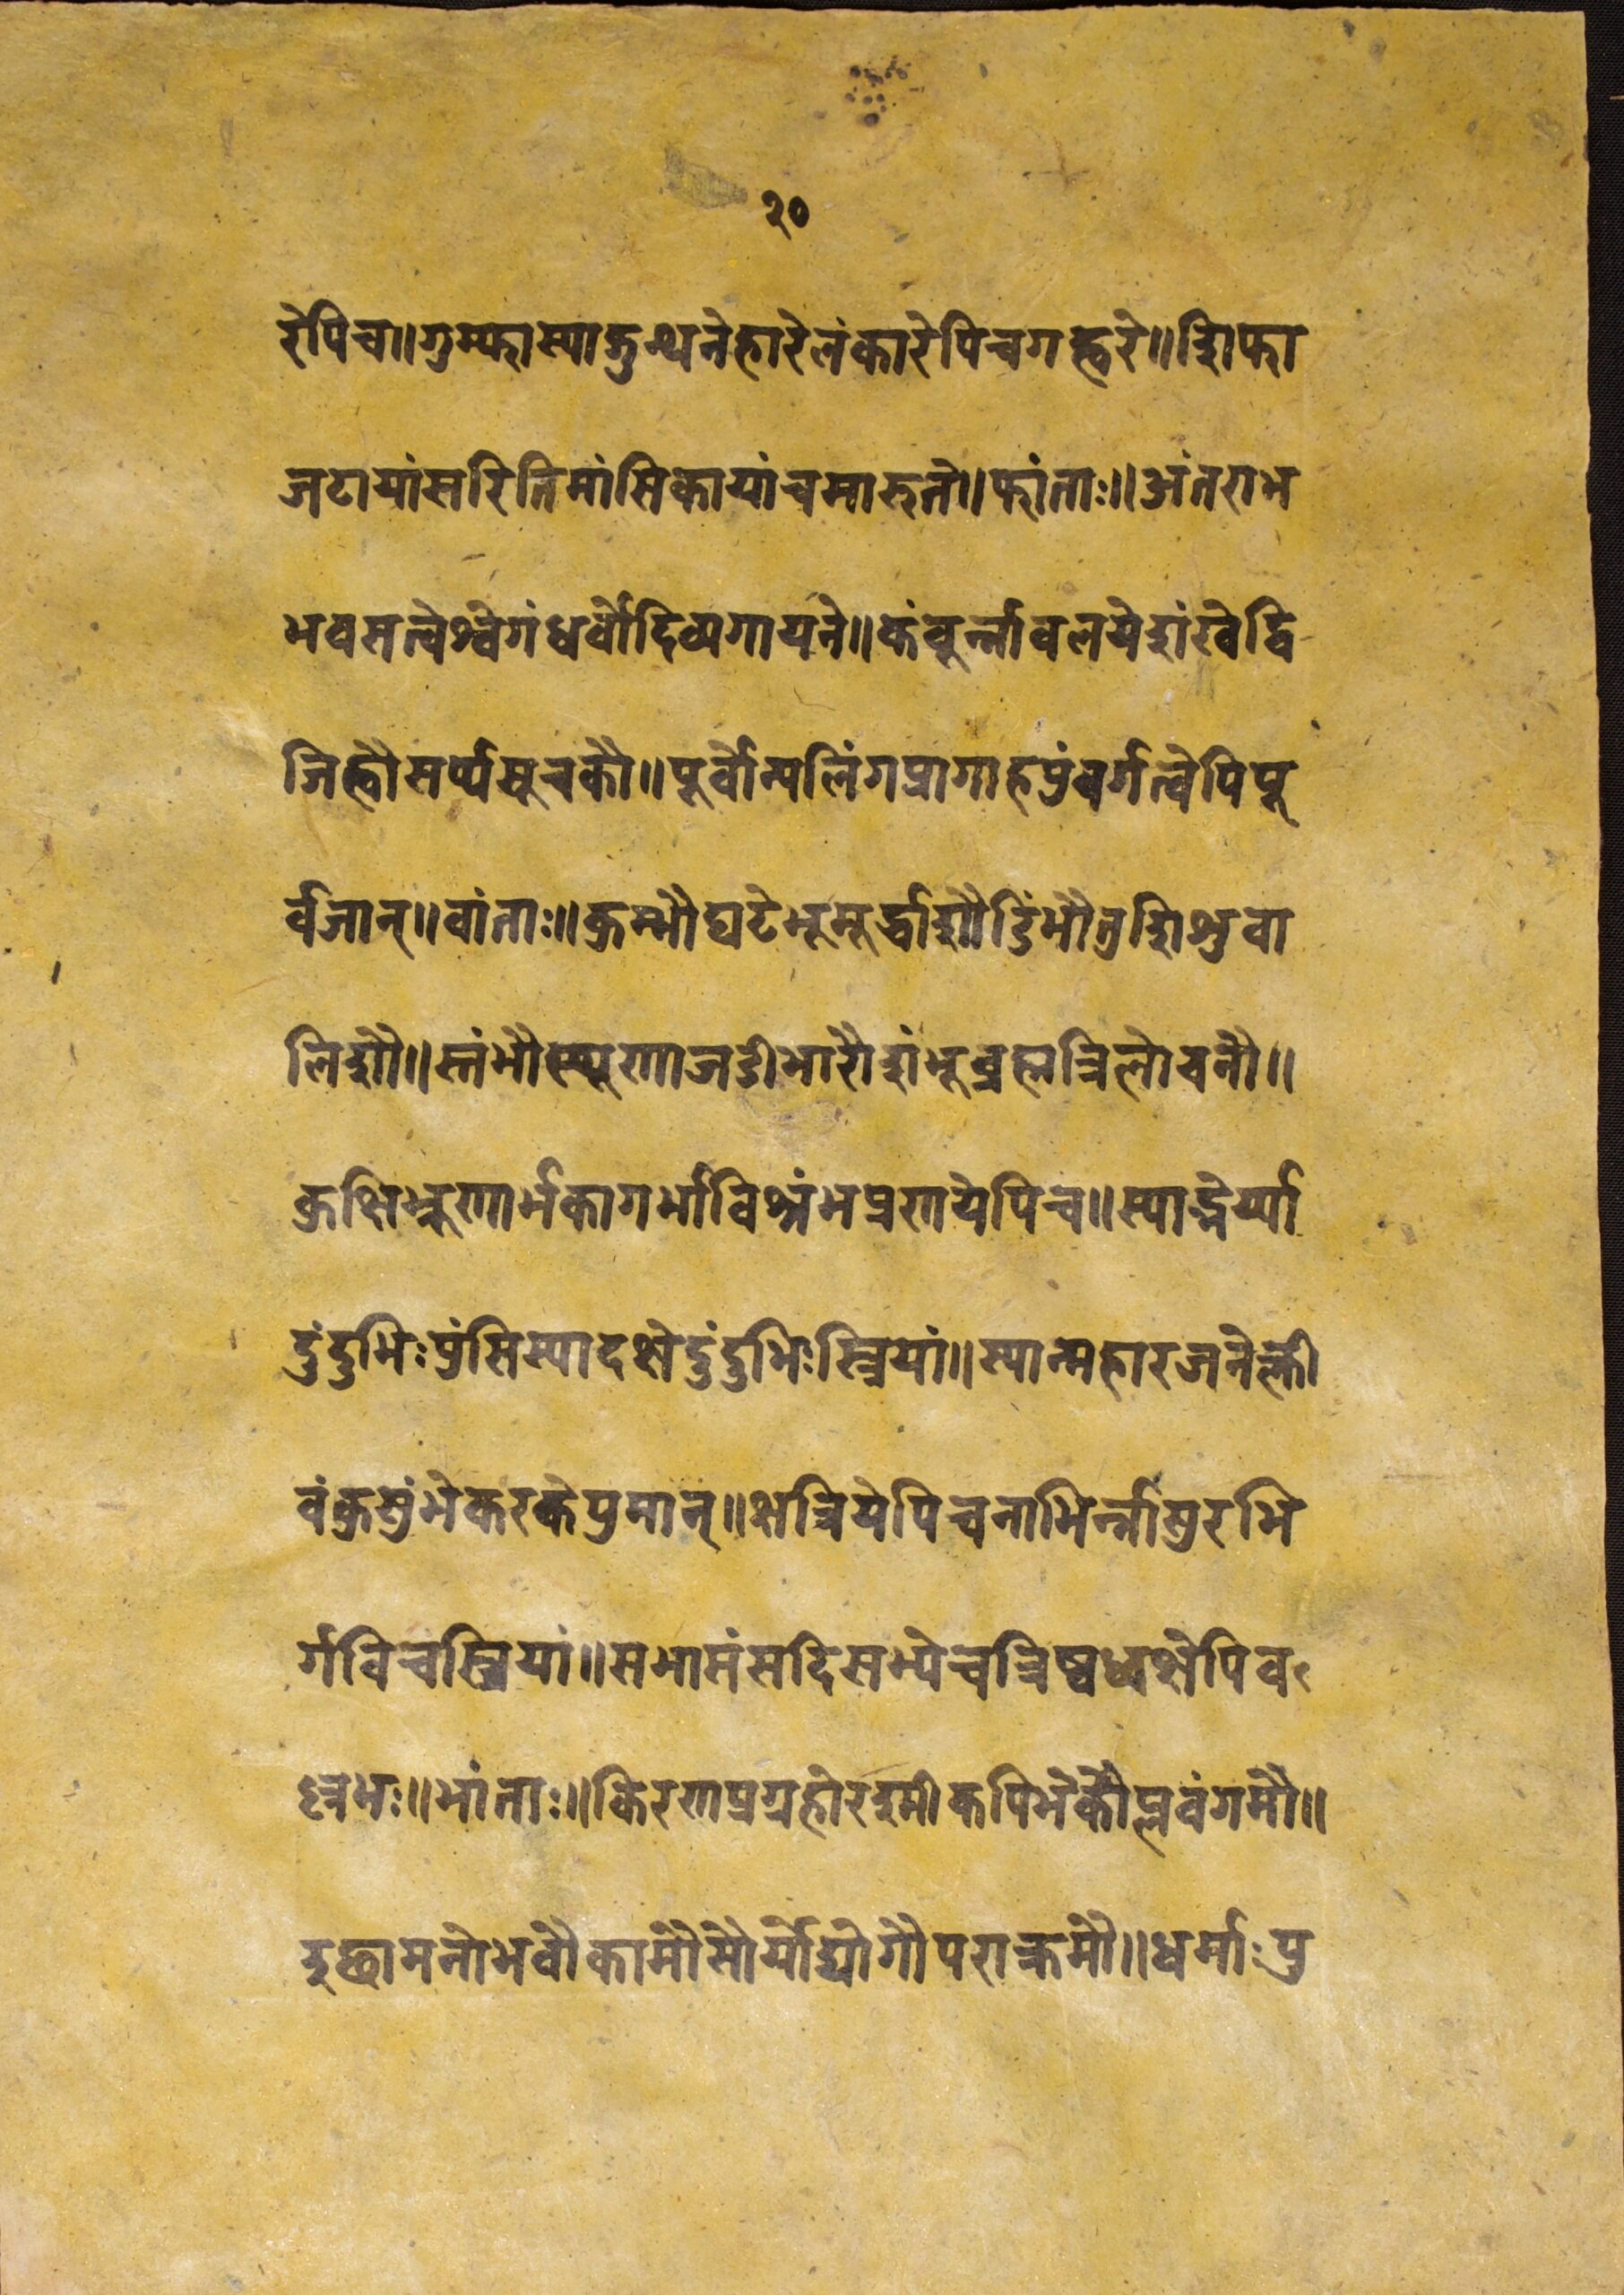 २०
रेपिच॥गुम्फास्याङ्गुन्थनेहारेलंकारेपिचगह्वरे॥शिफा
जटायांसरितिमांसिकायांचमारुते॥फांताः॥अंतराभ
भवसत्वेश्वेगंधर्वौदिव्यगायने॥कंबूर्न्नावलयेशंखेद्वि
जिह्वौसर्प्पसूचकौ॥पूर्वोन्यलिंगप्रागाहपुंवर्गत्वेपिपू
र्वजान्॥वांताः॥कुम्भौघटेभूमूर्द्धाशौडिंभौतुशिशुवा
लिशौ॥स्तंभौस्थूणाजडीभारौशंभूब्रह्मत्रिलोचनौ॥
कुक्षिभ्रूणार्भकागर्भाविश्रंभप्रणयेपिच॥स्याद्भेर्य्यां
दुंदुभिःपुंसिस्यादक्षेदुंदुभिःस्त्रियां॥स्यान्महारजनेक्ली
वंकुशुंभेकरकेपुमान्॥क्षत्रियेपिचनाभिर्न्नाशुरभि
र्गविचस्त्रियां॥सभासंसदिसभ्येचत्रिष्वध्यक्षेपिव
ल्लभः॥भांताः॥किरणप्रग्रहोरश्मीकपिभेकौप्लवंगमौ॥
इछामनोभवौकामौसौर्योद्योगौपराक्रमौ॥धर्माःपु